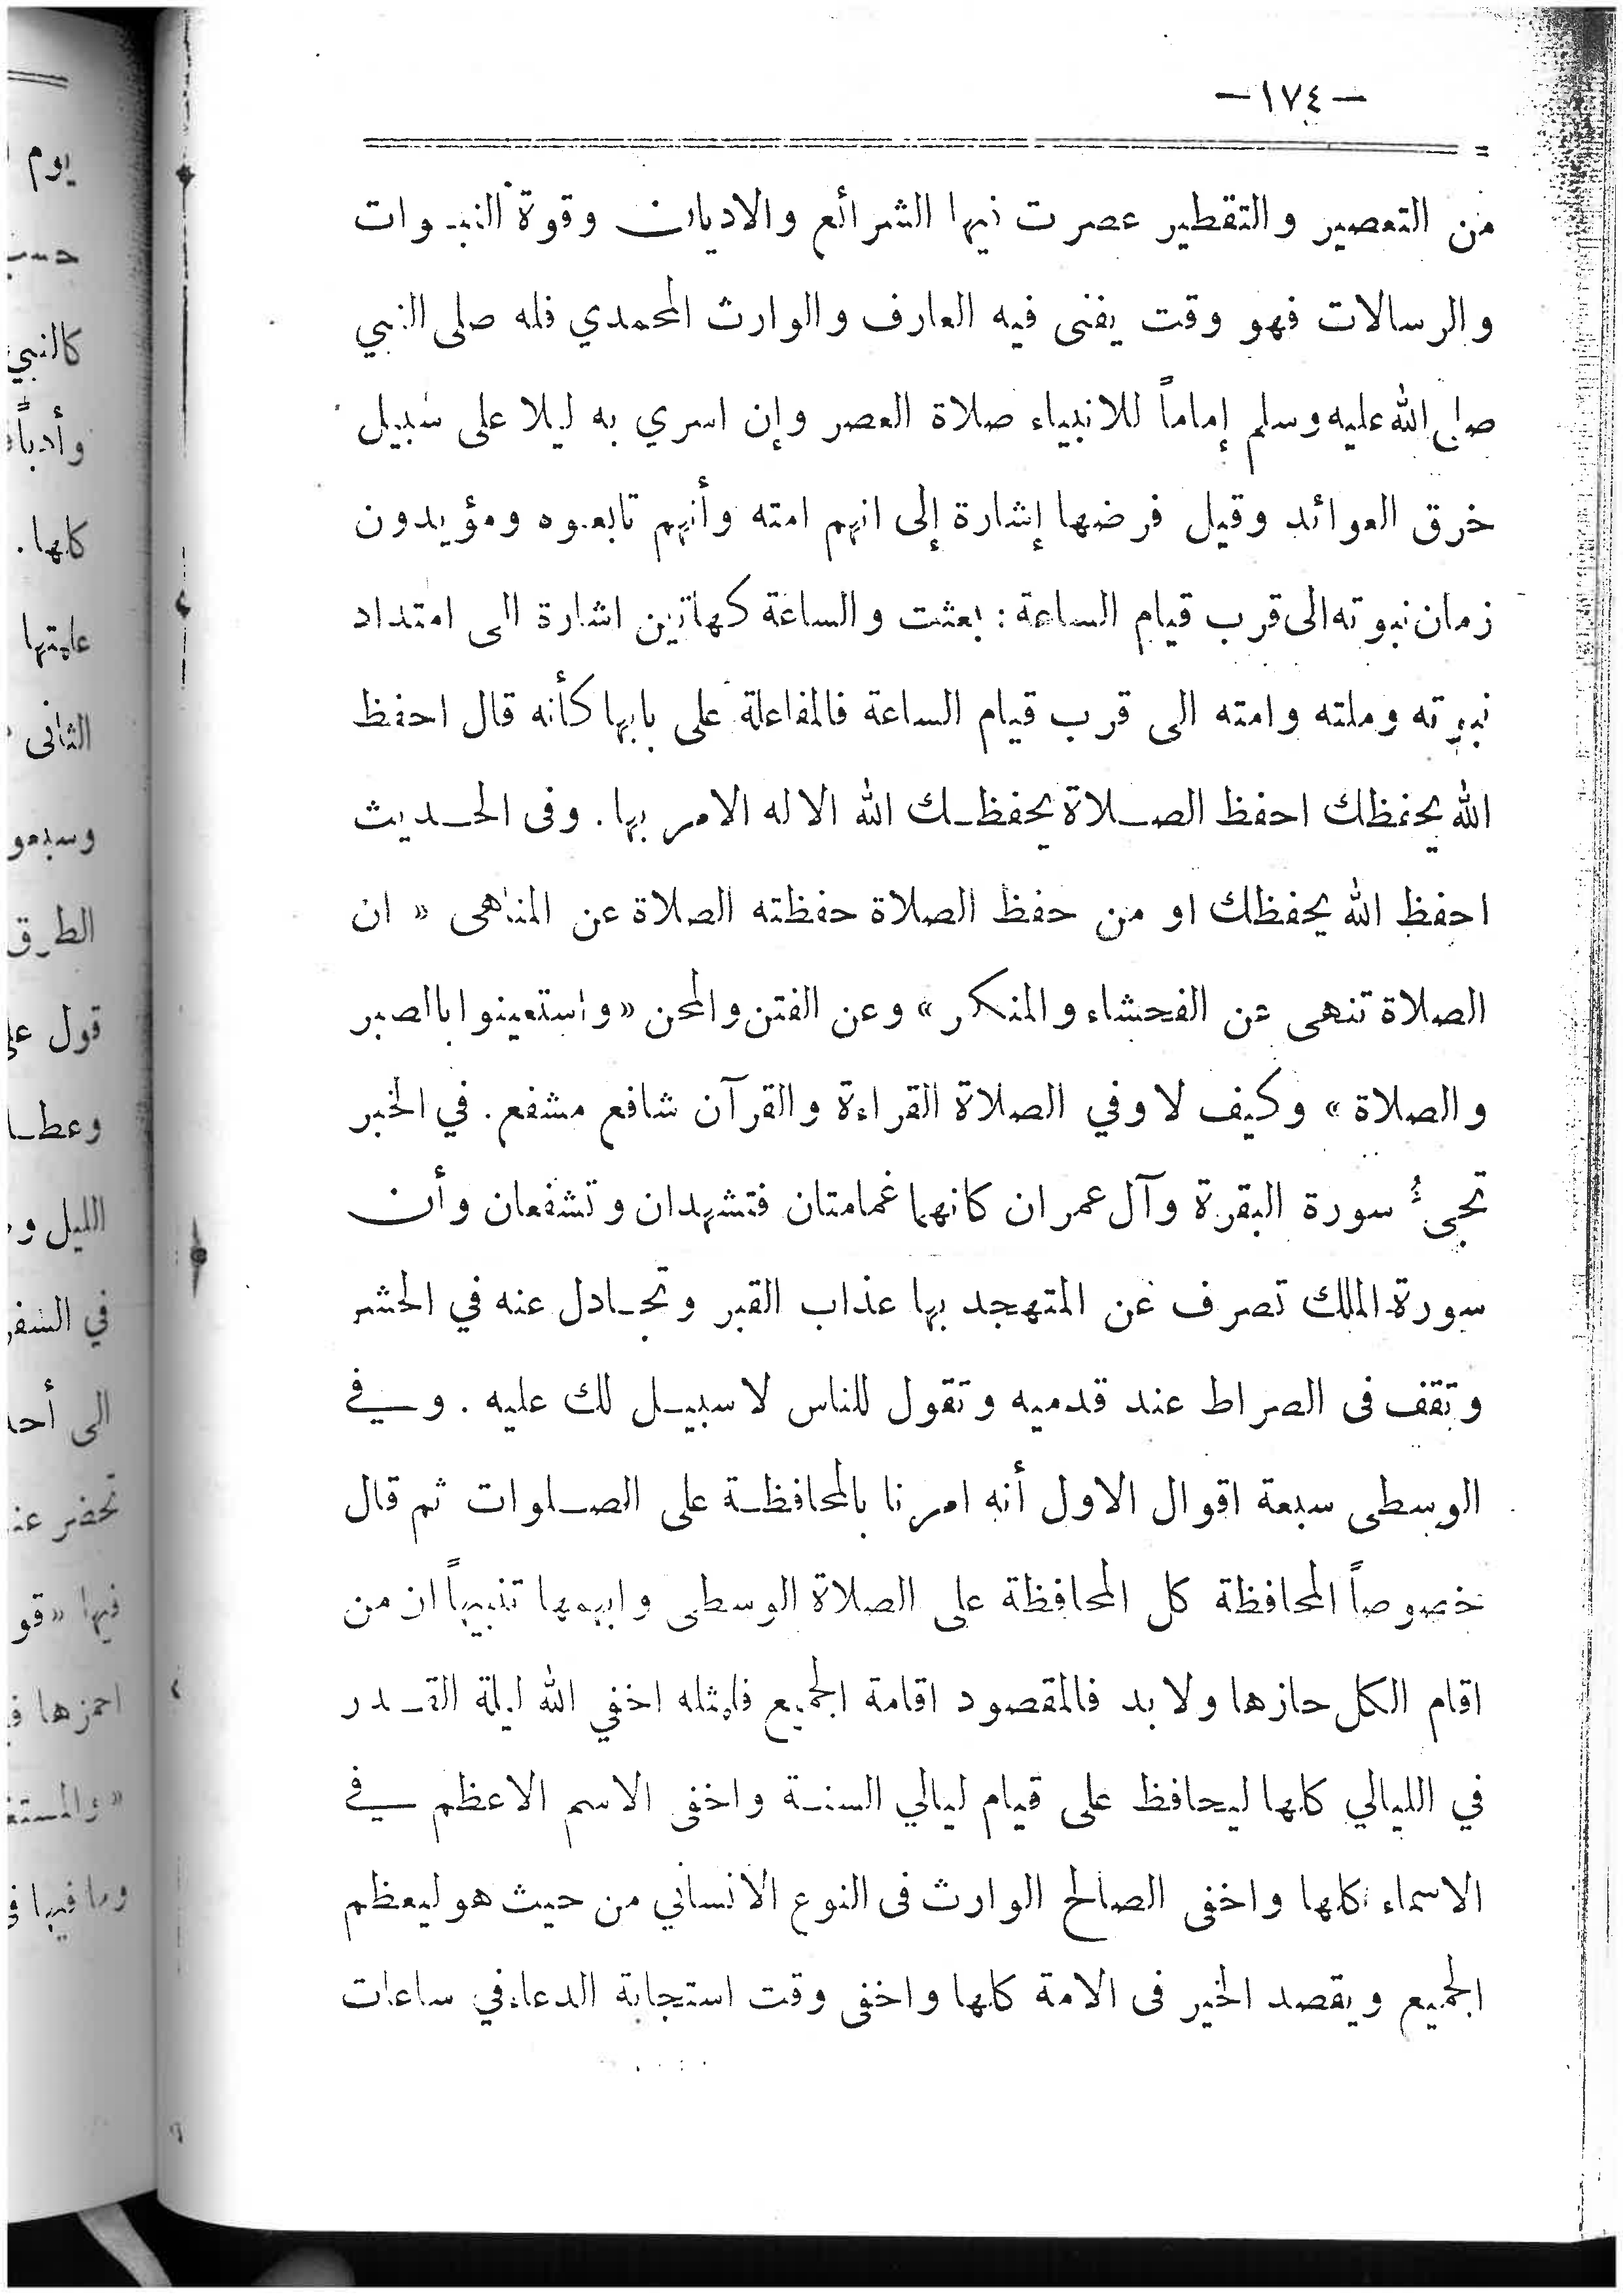 -١٧٤-
من التعصير والتقطير عصرت فيها الشرائع والاديان وقوة النبوات
والرسالات فهو وقت يفنى فيه العارف والوارث المحمدي فله صلى النبي
صلى الله عليه وسلم إماماً للانبياء صلاة العصر وإن اسري به ليلا على سبيل
خرق العوائد وقيل فرضها إشارة إلى انهم امته وأنهم تابعوه ومؤيدون
زمان نبوته الى قرب قيام الساعة : بعثت والساعة كهاتين اشارة الى امتداد
نبوته وملته وامته الى قرب قيام الساعة فالمفاعلة على بابها كأنه قال احفظ
الله يحفظك احفظ الصلاة يحفظك الله الا له الامر بها . وفى الحديث
احفظ الله يحفظك او من حفظ الصلاة حفظته الصلاة عن المناهى « ان
الصلاة تنهى عن الفحشاء والمنكر » وعن الفتن والمحن « واستعينوا باالصبر
والصلاة » وكيف لا وفي الصلاة القراءة والقرآن شافع مشفع . في الخبر
تجىُٔ سورة البقرة وآل عمران كانهما غمامتان فتشهدان وتشفعان وأن
سورة الملك تصرف عن المتهجد بها عذاب القبر وتجادل عنه في الحشر
وتقف فى الصراط عند قدميه وتقول للناس لا سبيل لك عليه . وفي
الوسطى سبعة اقوال الاول أنه امرنا بالمحافظة على الصلوات ثم قال
خصوصاً المحافظة كل المحافظة على الصلاة الوسطى وابهمها تنبيهاً ان من
اقام الكل حازها ولا بد فالمقصود اقامة الجميع فلمثله اخفي الله ليلة القدر
في الليالي كلها ليحافظ على قيام ليالي السنة واخفى الاسم الاعظم في
الاسماء كلها واخفى الصالح الوارث فى النوع الانساني من حيث هو ليعظم
الجميع ويقصد الخير فى الامة كلها واخفى وقت استجابة الدعاء في ساعات
يوم
كالنبي
كلها .
علمتها
الثانى
الطرق
قول
الليل
الى